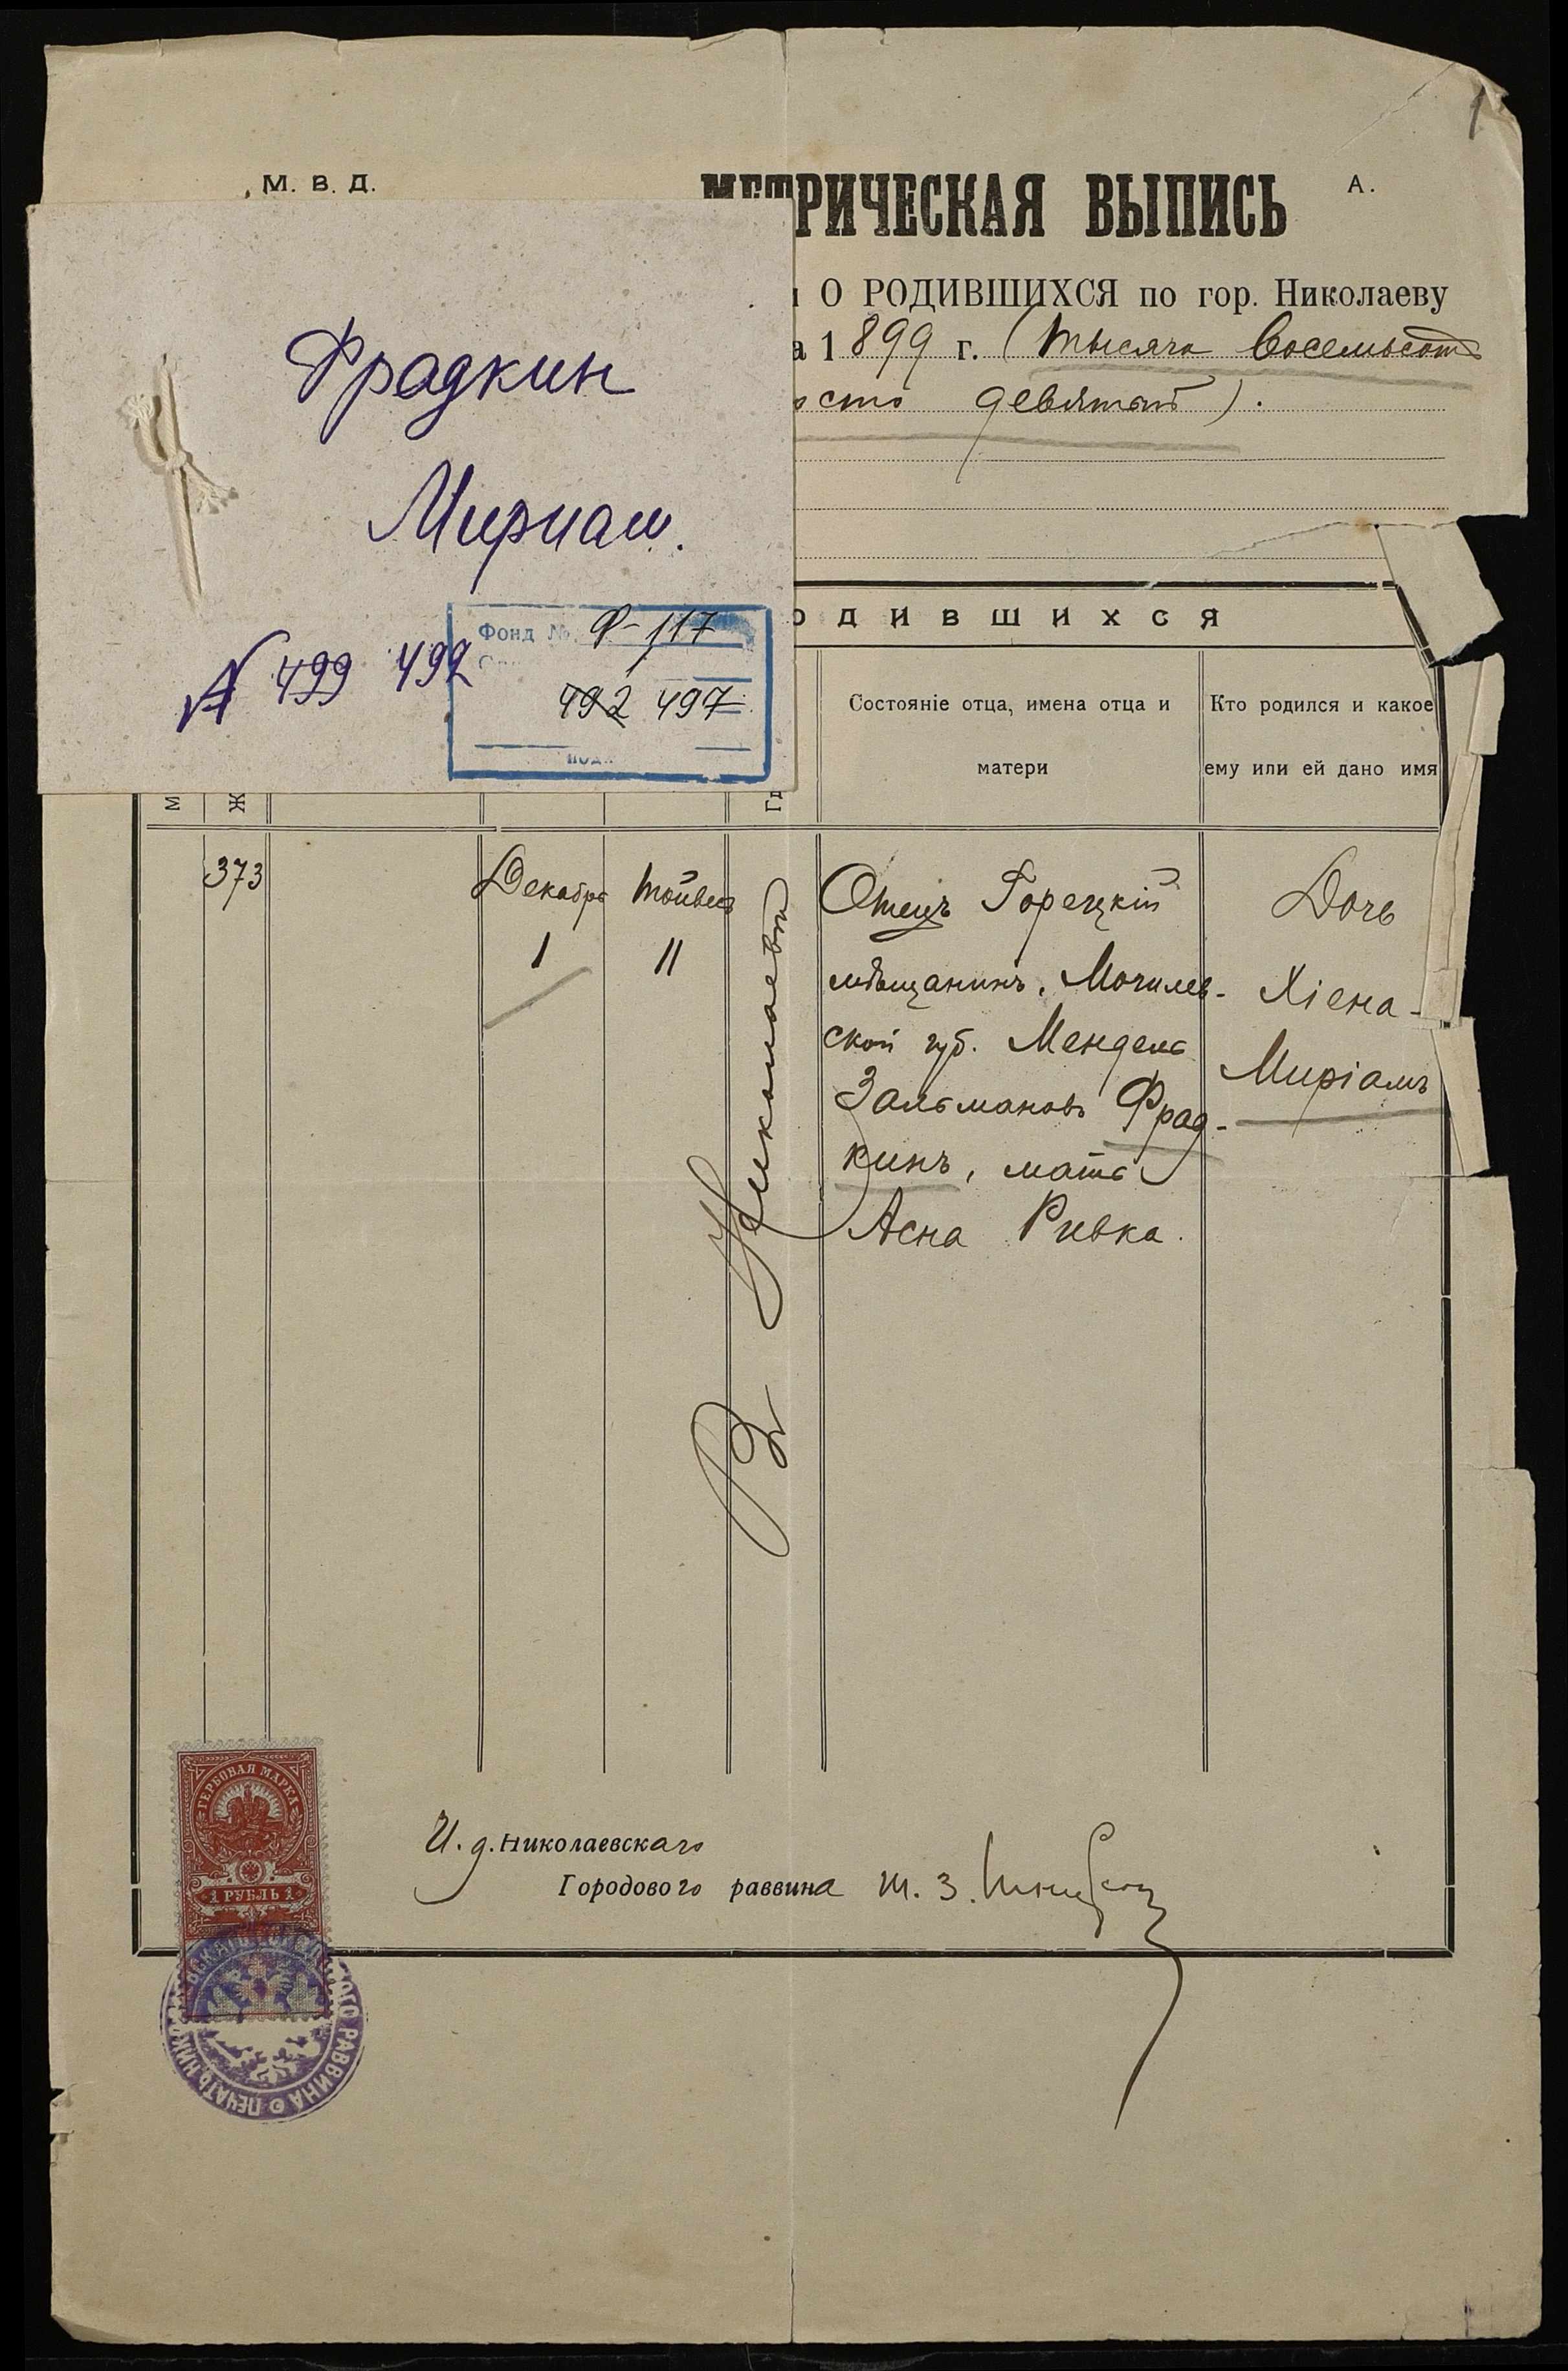 1
М. В. Д.
МЕТРИЧЕСКАЯ ВЫПИСЬ
А.
О РОДИВШИХСЯ по гор. Николаеву
а 1899 г. (тысяча восемьсотъ
осто девятый).
Фрадкин
Мириам.
№ 499 492
Фонд № Ф-117
492 497
одившихся
М
Ж
Состояніе отца, имена отца и
матери
Кто родился и какое
ему или ей дано имя
373
Декабрь
1
Тейвес
11
В Николаевѣ
Отецъ Горецкій
мѣщанинъ, Могилев-
ской губ. Мендель
Зальмановъ Фрад-
кинъ, мать
Асна Ривка.
Дочь
Хіена-
Миріамъ
И. д. Николаевскаго
Городового раввина М. З.
ГЕРБОВАЯ МАРКА
1 РУБЛЬ 1